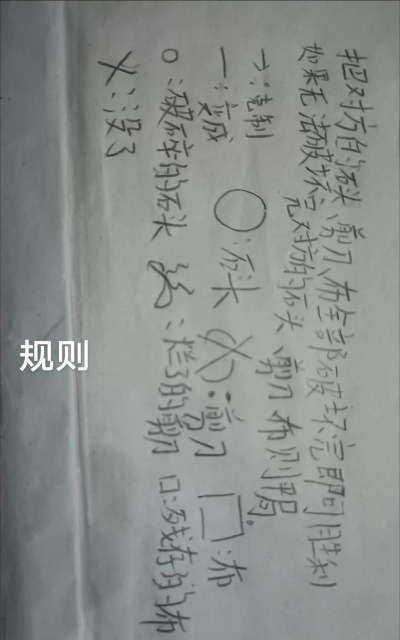 把对方的石头、剪刀、布全部破坏完即可胜利
如果无法破坏完对方的石头、剪刀、布则平局。
→:克制
一:变成 ○:石头 :剪刀 □:布
○:破碎的石头 :烂了的剪刀 □:残存的布
×:没了
规则